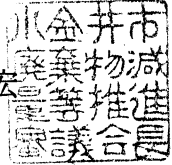 小金井市
廢棄物減
量等推進
審議会長